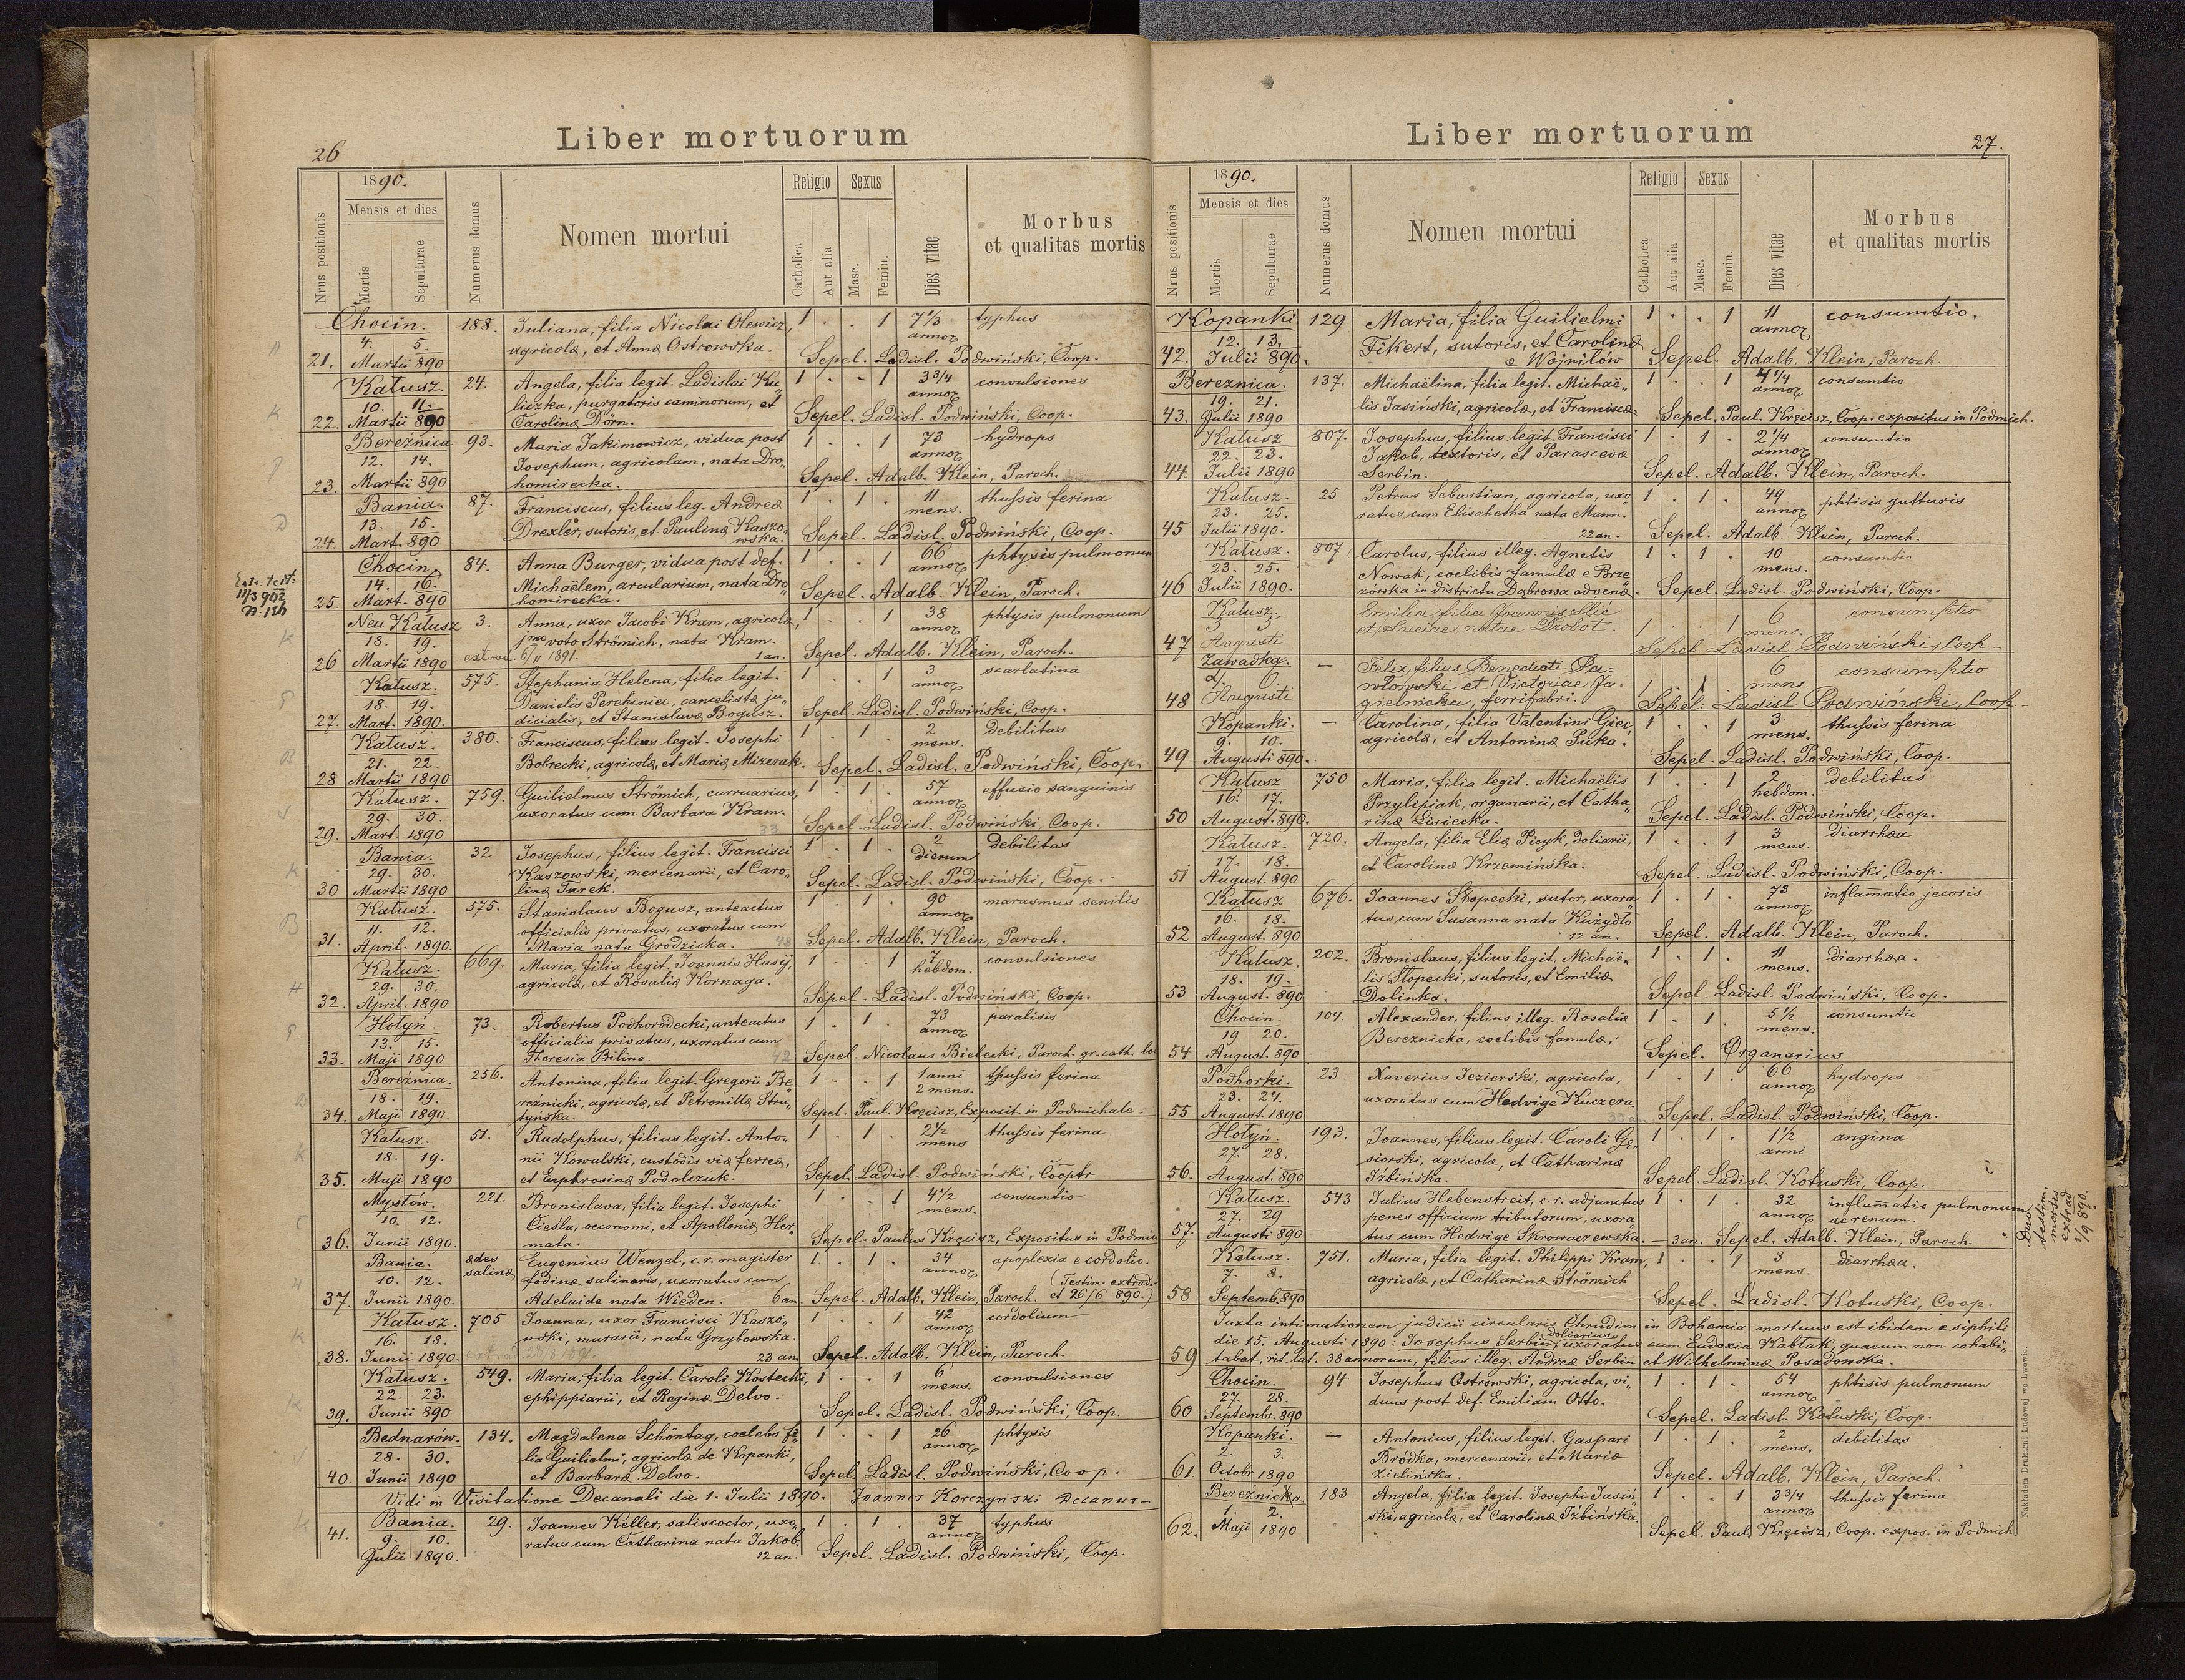 26
Liber mortuorum
1890.
Nrus positionis
Mensis et dies
Mortis
Sepulturae
Numerus domus
Nomen mortui
Religio
Catholica
Aut alia
Sexus
Masc.
Femin.
Dies vitae
Morbus
et qualitas mortis
Chocin. 188. Juliana, filia Nicolai Olewicz, 1 . . 1 7 1/3 typhus
4. 5. agricolæ, et Annæ Ostrowska. annor
21. Martii 890 Sepel. Ladisl. Podwiński, Coop.
Kałusz. 24. Angela, filia legit. Ladislai Ku 1 . . 1 3 3/4 convulsiones
10. 11. liczka, purgatoris caminorum, et annor
22. Martii 890 Carolinæ Dörn. Sepel. Ladisl. Podwiński, Coop.
Bereżnica 93. Maria Jakimowicz, vidua post 1 . . 1 73 hydrops
12. 14. Josephum, agricolam, nata Dro„ annor
23. Martii 890 homirecka. Sepel. Adalb. Klein, Paroch.
Bania. 87. Franciscus, filius leg. Andreæ 1 . 1 . 11 thussis ferina
13. 15. Drexler, sutoris, et Paulinæ Kaszo„ mens.
24. Mart. 890 wska. Sepel. Ladisl. Podwiński, Coop.
Chocin, 84. Anna Burger, vidua post def. 1 . . 1 66 phtysis pulmonum
14. 16. Michaëlem, arcularium, nata Dro annor
25. Mart. 890 homirecka. Sepel. Adalb. Klein, Paroch.
Neu Kałusz 3. Anna, uxor Jacobi Kram, agricolæ, 1 . . 1 38 phtysis pulmonum
18. 19. voto Strömich, nata Kram. annor
26 Martii 1890 extrad. 6/11 1891. 1 an. Sepel. Adalb. Klein, Paroch.
Kałusz. 575. Stephania Helena, filia legit. 1 . . 1 3 scarlatina
18. 19. Danielis Perehiniec, cancelistæ ju„ annor
27. Mart. 1890. dicialis, et Stanislavæ Bogusz. Sepel. Ladisl. Podwiński, Coop.
Kałusz. 380. Franciscus, filius legit. Josephi 1 . 1 . 2 debilitas
21. 22. Bobrecki, agricolæ, et Mariæ Mizerak. mens.
28 Martii 1890 Sepel. Ladisl. Podwiński, Coop.
Kałusz. 759. Guilielmus Strömich, curruarius, 1 . 1 . 57 effusio sanguinis
29. 30. uxoratus cum Barbara Kram. annor
29. Mart. 1890 33 Sepel. Ladisl. Podwiński, Coop.
Bania. 32 Josephus, filius legit. Francisci 1 . 1 . 2 debilitas
29. 30. Kaszowski, mercenarii, et Caro„ dierum
30 Martii 1890 linæ Turek. Sepel. Ladisl. Podwiński, Coop.
Kałusz. 575. Stanislaus Bogusz, anteactus 1 . 1 . 90 marasmus senilis
11. 12. officialis privatus, uxoratus cum annor
31. April. 1890. Maria nata Grodzicka. 48 Sepel. Adalb. Klein, Paroch.
Kałusz. 669. Maria, filia legit. Joannis Hasij, 1 . . 1 7 convulsiones
29. 30. agricolæ, et Rosaliæ Kornaga. hebdom.
32. April. 1890 Sepel. Ladisl. Podwiński, Coop.
Hołyń. 73. Robertus Podhorodecki, anteactus 1 . 1 . 73 paralisis
13. 15. officialis privatus, uxoratus cum annor
33. Maji 1890 Theresia Bilina. 42 Sepel. Nicolaus Bielecki, Paroch. gr. cath. lo
Bereżnica. 256. Antonina, filia legit. Gregorii Be 1 . . 1 1 anni thussis ferina
18. 19. reżnicki, agricolæ, et Petronillæ Stru„ 2 mens.
34. Maji 1890. tyńska. Sepel. Paul. Kręcisz, Exposit. in Podmichale.
Kałusz. 51. Rudolphus, filius legit. Anto„ 1 . 1 . 2 1/2 thussis ferina
18. 19. nii Kowalski, custodis viæ ferreæ, mens
35. Maji 1890 et Euphrosinæ Podolczuk. Sepel. Ladisl. Podwiński, Cooptr
Mysłów. 221. Bronislava, filia legit. Josephi 1 . . 1 4 1/2 consumtio
10. 12. Cieśla, oeconomi, et Apolloniæ Her mens.
36. Junii 1890. mata. Sepel. Paulus Kręcisz, Expositus in Podmic
Bania. ædes salinæ Eugenius Wenzel, c.r. magister 1 . 1 . 34 apoplexia e cordolio.
10. 12. fodinæ salinaris, uxoratus cum annor (Testim. extrad.
37. Junii 1890. Adelaide nata Wieden. 6 an. Sepel. Adalb. Klein, Paroch. et 26/6 890.)
Kałusz. 705 Joanna, uxor Francisci Kaszo„ 1 . . 1 42 cordolium
16. 18. wski, murarii, nata Grzybowska. annor
38. Junii 1890. 23 an. Sepel. Adalb. Klein, Paroch.
Kałusz. 549. Maria, filia legit. Caroli Kostecki, 1 . . 1 6 convulsiones
22. 23. ephippiarii, et Reginæ Delvo. mens.
39. Junii 890 Sepel. Ladisl. Podwiński, Coop.
Bednarów. 134. Magdalena Schöntag, coelebs fi„ 1 . . 1 26 phtysis
28. 30. lia Guilielmi, agricolæ de Kopanki, annor
40. Junii 1890 et Barbaræ Delvo. Sepel. Ladisl. Podwiński, Coop.
Vidi in Visitatione Decanali die 1. Julii 1890. Joannes Korczyński Decanus
Bania. 29. Joannes Keller, saliscoctor, uxo„ 1 . 1 . 37 typhus
41. 9. 10. ratus cum Catharina nata Jakob. annor
Julii 1890. 12 an. Sepel. Ladisl. Podwiński, Coop.
Liber mortuorum
27.
1890.
Nrus positionis
Mensis et dies
Mortis
Sepulturae
Numerus domus
Nomen mortui
Religio
Catholica
Aut alia
Sexus
Masc.
Femin.
Dies vitae
Morbus
et qualitas mortis
Kopanki 129 Maria, filia Guilielmi 1 . . 1 11 consumtio.
12. 13. Fikert, sutoris, et Carolinæ annor
42. Julii 890. e Wojniłów Sepel. Adalb. Klein, Paroch.
Bereznica. 137. Michaëlina, filia legit. Michaë„ 1 . . 1 4 1/4 consumtio
19. 21. lis Jasiński, agricolæ, et Franciscæ. annor
43. Julii 1890 Sepel. Paul. Kręcisz, Coop. expositus in Podmich.
Kałusz 807. Josephus, filius legit. Francisci 1 . 1 . 2 1/4 consumtio
22. 23. Jakob, textoris, et Parascevæ annor
44. Julii 1890 Serbin. Sepel. Adalb. Klein, Paroch.
Kałusz. 25 Petrus Sebastian, agricola, uxo 1 . 1 . 49 phtisis gutturis
23. 25. ratus cum Elisabetha nata Mann. annor
45 Julii 1890. 22 an. Sepel. Adalb. Klein, Paroch.
Kałusz. 807 Carolus, filius illeg. Agnetis 1 . 1 . 10 consumtio
23. 25. Nowak, coelibis famulæ e Brze mens.
46 Julii 1890. zówka in districtu Dąbrowa advenæ. Sepel. Ladisl. Podwiński, Coop.
Kałusz. Emilia filia Joannis Slić 6 consumptio
3 5 et Luciae, natae Drobot. 1 . . 1 mens.
47 Augusti Sepel. Ladisl. Podwiński, Coop.
Zawadka. — Felix, filius Benedicti Pa= 6 consumptio
6. włowski et Victoriae Ja. 1 . 1 mens.
48 Augusti gielnicka, ferrifabri. Sepel. Ladisl. Podwiński, Coop.
Kopanki. — Carolina, filia Valentini Giec, 1 . . 1 3 thussis ferina
9. 10. agricolæ, et Antoninæ Puka. mens.
49 Augusti 890. Sepel. Ladisl. Podwiński, Coop.
Kałusz 750 Maria, filia legit. Michaëlis 1 . . 1 2 debilitas
16. 17. Przylipiak, organarii, et Catha„ hebdom.
50 August. 890. rinæ Lisiecka. Sepel. Ladisl. Podwiński, Coop.
Kałusz. 720. Angela, filia Eliæ Picyk, doliarii, 1 . . 1 3 diarrhæa
17. 18. et Carolinæ Krzemińska. mens.
51 August. 890 Sepel. Ladisl. Podwiński, Coop.
Kałusz 676. Joannes Słopecki, sutor, uxora„ 1 . 1 . 73 inflam̄atio jecoris
16. 18. tus cum Susanna nata Kużydło annor
52 August. 890 12 an. Sepel. Adalb. Klein, Paroch.
Kałusz. 202. Bronislaus, filius legit. Michaë„ 1 . 1 . 11 diarrhæa.
18. 19. lis Słopecki, sutoris, et Emiliæ mens.
53 August. 890 Dolinka. Sepel. Ladisl. Podwiński, Coop.
Chocin. 104. Alexander, filius illeg. Rosaliæ 1 . 1 . 5 1/2 consumtio
19 20. Bereznicka, coelibis famulæ, mens.
54 August. 890 Sepel. Organarius
Podhorki. 23 Xaverius Jezierski, agricola, 1 . 1 . 66 hydrops
23. 24. uxoratus cum Hedvige Kuczera annor
55 August. 1890 Sepel. Ladisl. Podwiński, Coop.
Hołyń. 193. Joannes, filius legit. Caroli Gę„ 1 . 1 . 1 1/2 angina
27. 28. siorski, agricolæ, et Catharinæ anni
56. August. 890 Iżbińska. Sepel. Ladisl. Kotuski, Coop.
Kałusz. 543 Julius Hebenstreit, c.r. adjunctus 1 . 1 . 32 inflam̄atio pulmonum
27. 29 penes officium tributorum, uxora annor ac renum.
57. Augusti 890 tus cum Hedvige Skrowaczewska. — 3 an. Sepel. Adalb. Klein, Paroch.
Duo testim. mortis extrad 1/9 890.
Kałusz. 751. Maria, filia legit. Philippi Kram, 1 . . 1 3 diarrhæa.
7. 8. agricolæ, et Catharinæ Strömich mens.
58 Septemb. 890 Sepel. Ladisl. Kotuski, Coop.
Juxta intimationem judicii circularis Chrudim in Bohemia mortuus est ibidem e siphili
die 15. Augusti 1890: Josephus Serbin, doliarius uxoratus cum Eudoxia Kabłak, quacum non cohabi„
59 tabat, rit. lat. 38 annorum, filius illeg. Andreæ Serbin et Wilhelminæ Posadowska.
Chocin. 94 Josephus Ostrowski, agricola, vi„ 1 . 1 . 54 phtisis pulmonum
27. 28. duus post def. Emiliam Otto. annor
60 Septembr. 890 Sepel. Ladisl. Kotuski, Coop.
Kopanki. — Antonius, filius legit. Gaspari 1 . 1 . 2 debilitas
2. 3. Bródka, mercenarii, et Mariæ mens.
61. Octobr. 1890 Zielińska. Sepel. Adalb. Klein, Paroch.
Bereznicka. 183 Angela, filia legit. Josephi Jasiń„ 1 . . 1 3 3/4 thussis ferina
2. ski, agricolæ, et Carolinæ Iżbińska. annor
62. Maji 1890 Sepel. Paul. Kręcisz, Coop. expos. in Podmich
Nakładem Drukarni Ludowej we Lwowie.